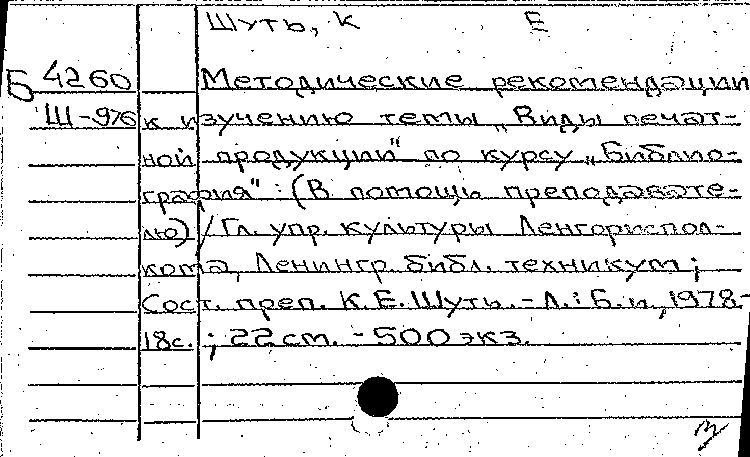 Шуть, К Е
Б 4260 Методические рекомендации
Ш-976 к изучению темы „Виды печат-
ной продукции" по курсу „Библио-
графия": (В помощь преподавате-
лю) / Гл. упр. культуры Ленгориспол-
кома, Ленингр. библ. техникум;
Сост. преп. К.Е. Шуть. - Л.: Б.и., 1978.-
18с.; 22 см. - 500 экз.